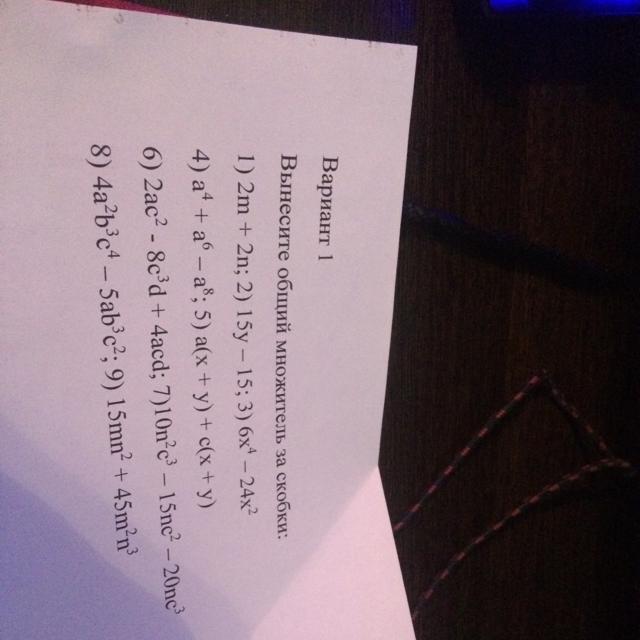 Вариант 1
Вынесите общий множитель за скобки:
1) 2m + 2n; 2) 15y – 15; 3) 6x⁴ – 24x²
4) a⁴ + a⁶ – a⁸; 5) a(x + y) + c(x + y)
6) 2ac² - 8c³d + 4acd; 7)10n²c³ – 15nc² – 20nc³
8) 4a²b³c⁴ – 5ab³c²; 9) 15mn² + 45m²n³